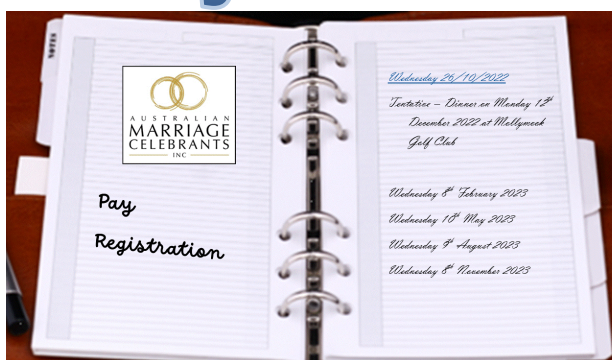 NOTES
AUSTRALIAN
MARRIAGE
CELEBRANTS
INC
Pay
Registration
Wednesday 26/10/2022
Tentative – Dinner on Monday 12th
December 2022 at Mollymook
Golf Club
Wednesday 8th February 2023
Wednesday 10th May 2023
Wednesday 9th August 2023
Wednesday 8th November 2023